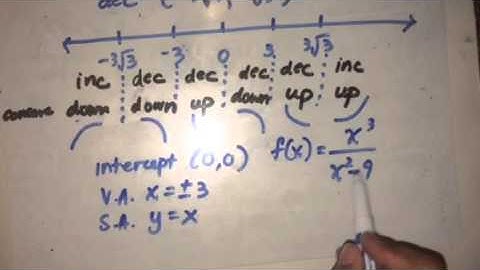 dec (
-3√3 -3 0 3 3√3
inc dec dec dec dec inc
concave down down up down up up
intercept (0,0) f(x) = x³/(x²-9)
V.A. x = ±3
S.A. y = x